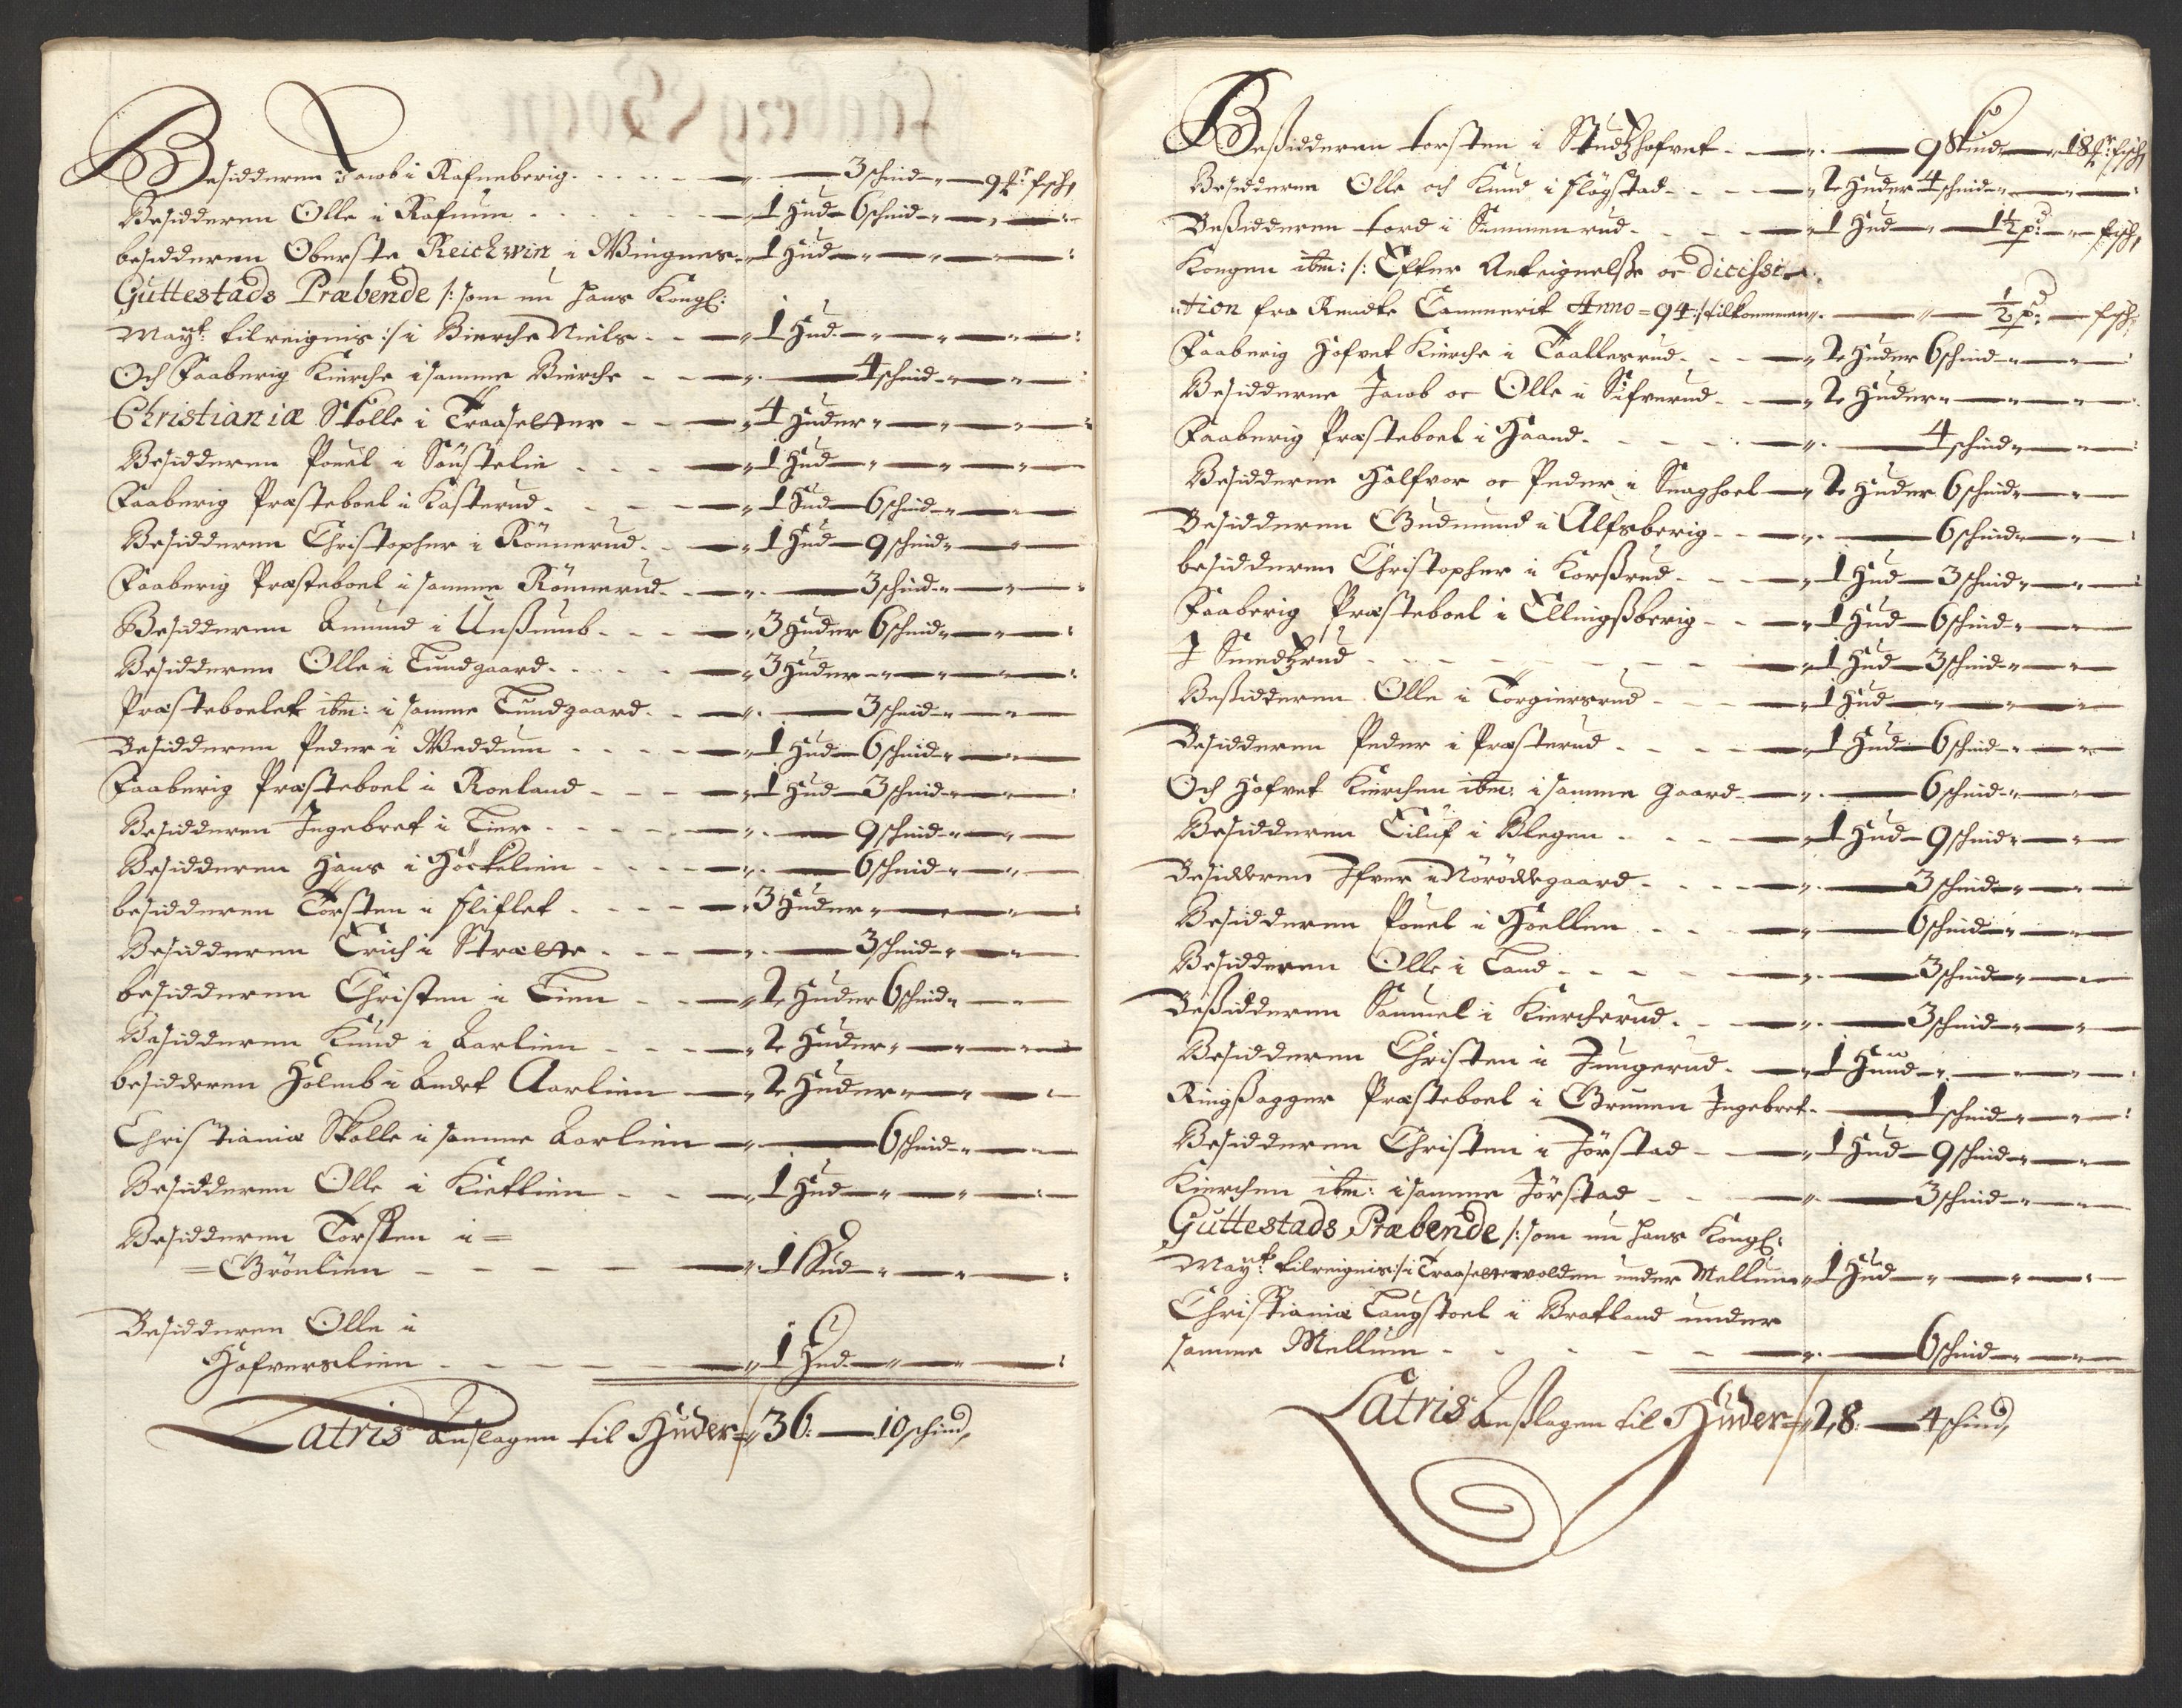 Besidderen Jacob i Rafneberig - - - 3 schind - 9 fr: fisch,
Besidderen Olle i Rafnum - - - 1 Hud - 6 schind
besidderen Oberste Reichwin i Wingnes - 1 Hud
Guttestads Præbende /: som nu hans Kongl:
Mayt: tilreignis :/ i Bierche Niels - - 1 Hud
Och Faaberig Kierche i samme Bierche - - 4 schind
Christianiæ Skolle i Traasetter - - 4 Huder
Besidderen Pouel i Söustelie - - - 1 Hud
Faaberig Præsteboel i Kasterud - - - 1 Hud - 6 schind
Besidderen Christopher i Rönnerud - - 1 Hud - 9 schind
Faaberig Præsteboel i samme Rönnerud - 3 schind
Besidderen Amund i Unßumb - - - 3 Huder 6 schind
Besidderen Olle i Lundgaard - - - 3 Huder
Præsteboelet ibm: i samme Lundgaard - - 3 schind
Besidderen Peder i Weddum - - - 1 Hud - 6 schind
Faaberig Præsteboel i Roeland - - - 1 Hud - 3 schind
Besidderen Ingebret i Lier - - - 9 schind
Besidderen Hans i Höckelien - - - 6 schind
besidderen Torsten i Fliflet - - - 3 Huder
Besidderen Erich i Strætte - - - 3 schind
besidderen Christen i Lien - - 2 Huder 6 schind
Besidderen Knud i Aarlien - - - 2 Huder
besidderen Holmb i Andet Aarlien - 2 Huder
Christianiæ Skolle i samme Aarlien - 6 schind
Besidderen Olle i Kietlien - - - 1 Hud
Besidderen Torsten i =
= Grönlien - - - - 1 Hud
Besidderen Olle i
Hafverslien - - - - 1 Hud
Latris Anslagen til Huder = 36: - 10 schind,
Beßidderen torsten i Studtzhofvet - - 9 Skind - 18 fr: fisch,
Besidderen Olle och Knud i Flögstad - - - 2 Huder 4 schind
Beßidderen tord i Simmenrud - - - 1 Hud - 1½ p: - fisch,
Kongen ibm: /: Efter Anteignelße oc
tion fra Rendte Cammerit Anno = 94 :/ tilkommen - ½ p: - fisch,
Faaberig Hofvet Kierche i Taallerud - - 2 Huder 6 schind
Besidderne Jacob oc Olle i Sifverud - - 2 Huder
Faaberig Præsteboel i Haand - - - 4 schind
Besidderne Halfvor oc Peder i Smaghoel - 2 Huder 6 schind
Besidderen Gudmund i Alfsberig - - 6 schind
besidderen Christopher i Korßrud - - - 1 Hud - 3 schind
Faaberig Præsteboel i Ellingßberig - - 1 Hud - 6 schind
I Smedtzrud - - - - - 1 Hud - 3 schind
Beßidderen Olle i Torgiersrud - - - 1 Hud
Besidderen Peder i Præsterud - - - 1 Hud - 6 schind
Och Hofvet Kierchen ibm: i samme Gaard - 6 schind
Besidderen Eiluf i Blegen - - - 1 Hud - 9 schind
Besidderen Ifver i Nöröddegaard - - - 3 schind
Besidderen Pouel i Hoellen - - - 6 schind
Besidderen Olle i Land - - - 3 schind
Beßidderen Samuel i Kiercherud - - 3 schind
Besidderen Christen i Jungerud - - 1 Huud
Ringßagger Præsteboel i Brunen Ingebret - 1 schind
Besidderen Christen i Jörstad - - 1 Hud - 9 schind
Kierchen ibm: i samme Jörstad - - - 3 schind
Guttestads Præbende /: som nu hans Kongl:
Mayt: tilreignis :/ i Traasettervolden under Mellum 1 Hud
Christianiæ Laugstoel i Bratland under
samme Mellum - - - - 6 schind
Latris Anslagen til Huder = 28: - 4 schind,